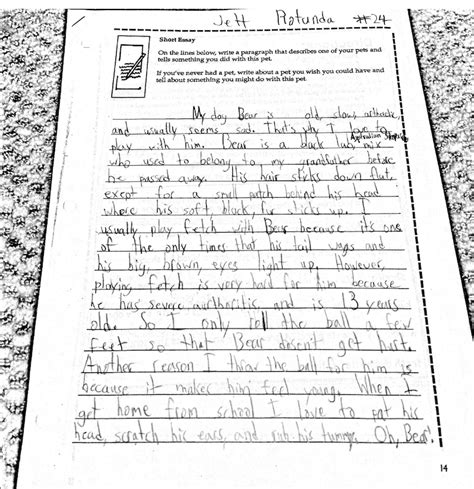 Jett Rotunda #24
Short Essay
On the lines below, write a paragraph that describes one of your pets and
tells something you did with this pet.
If you've never had a pet, write about a pet you wish you could have and
tell about something you might do with this pet.
My dog Bear is old, slow,
and usually seems sad. That's why I
play with him. Bear is a black lab mix
Australian
who used to belong to my grandfather before
he passed away. His hair sticks down flat,
exept for a small patch behind his head
where his soft, black, fur sticks up. I
usually play fetch with Bear because it's one
of the only times that his tail wags and
his big, brown, eyes light up. However,
playing fetch is very hard for him because
he has severe and is 13 years
old. So I only roll the ball a few
feet so that Bear doesn't get hurt.
Another reason I throw the ball for him is
because it makes him feel young. When I
get home from school I love to pat his
head, scratch his ears, and rub his tummy. Oh, Bear!
14